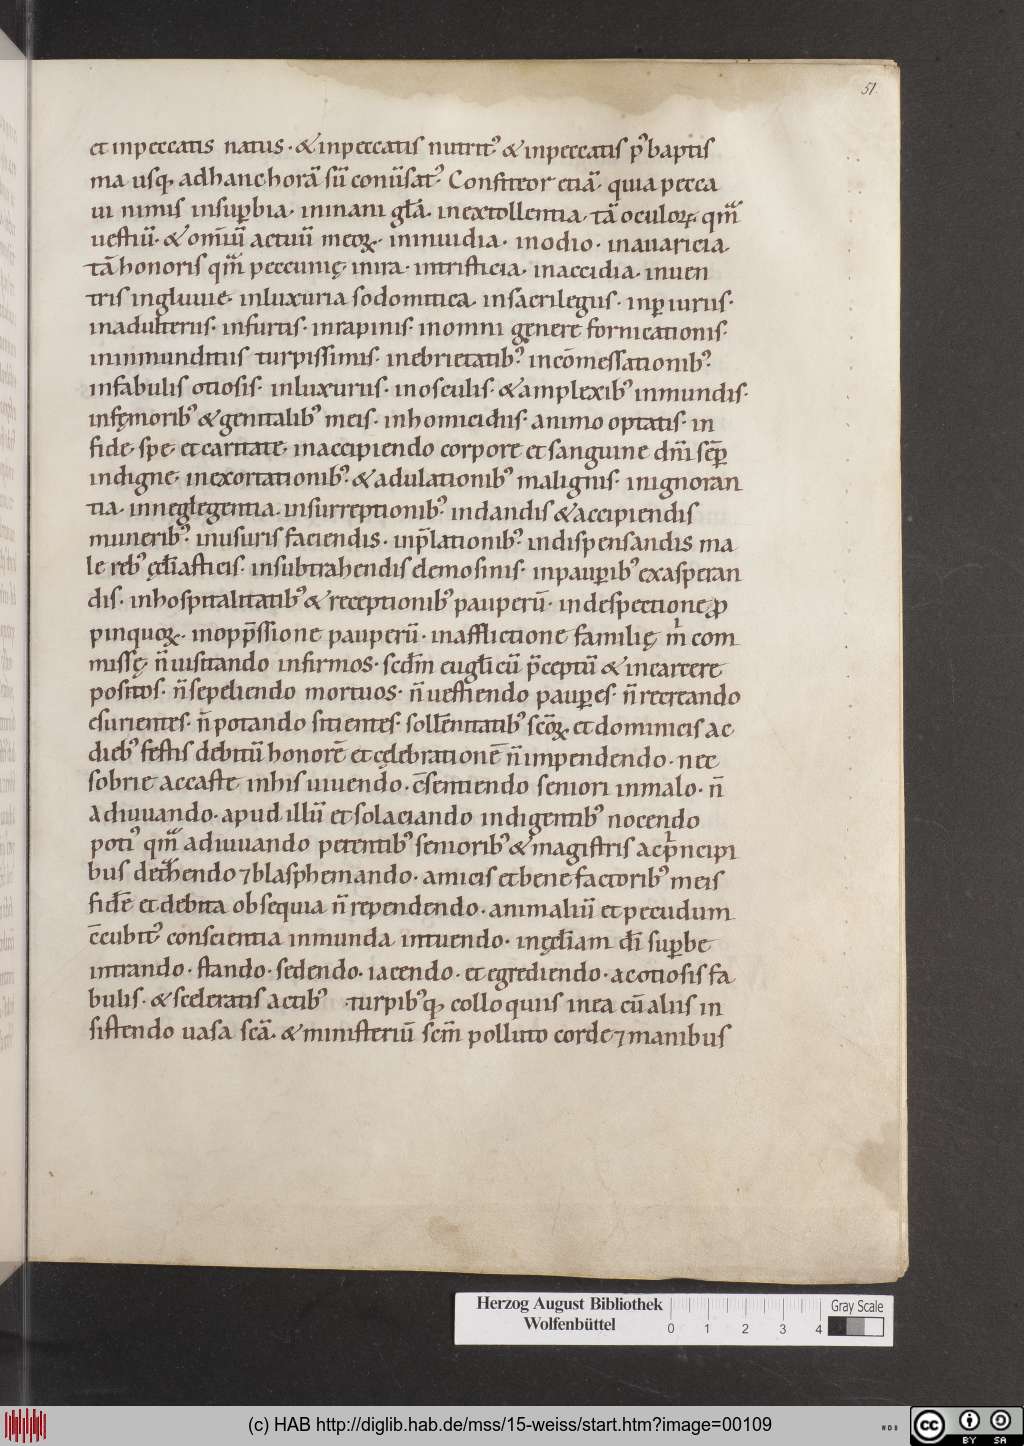 51.
et inpeccatis natus · & inpeccatis nutrit᾽ & inpeccatis p᾽ baptis
ma usq; adhanc horā sū conūsat᾽ Confiteor etiā · quia pecca
ui nimis insuꝑbia · ininani glā · inextollentia · tā oculoꝝ · qm̄
uestiū · & om̄iū actuū meoꝝ · ininuidia · inodio · inauaricia ·
tā honoris qm̄ peccunię · inira · intristicia · inaccidia · inuen
tris ingluuie · inluxuria sodomitica · insacrilegiis · inꝑiuriis ·
inadulteriis · infurtis · inrapinis · inomni genere fornicationis ·
ininmunditiis turpissimis · inebrietatib᾽ · incōmessationib᾽ ·
infabulis otiosis · inluxuriis · inosculis · & amplexib᾽ inmundis ·
infęmorib᾽ & genitalib᾽ meis · inhomicidiis · animo optatis · in
fide · spe · et caritate · inaccipiendo corpore et sanguine dn̄i sēꝑ
indigne · inexortationib᾽ · & adulationib᾽ malignis · inignoran
tia · inneglegentia · insurreptionib᾽ · indandis & accipiendis
munerib᾽ · inusuris faciendis · inp̄lationib᾽ · indispensandis ma
le reb᾽ ęcl̄iasticis · insubtrahendis elemosinis · inpauꝑib᾽ exasperan
dis · inhospitalitatib᾽ & receptionib᾽ pauperū · indespectione ꝓ
pinquoꝝ · inopp̄ssione pauperū · inafflictione familię m̄ com
missę n̄ uisitando infirmos · scdm̄ euglicū p̄ceptū & incarcere
positos · n̄ sepeliendo mortuos · n̄ uestiendo pauꝑes · n̄ recreando
esurientes · n̄ potando sitientes · sollēnitatib᾽ scōꝝ et dominicis ac
dieb᾽ festis debitū honorē et cęlebrationē n̄ inpendendo · nec
sobrie ac caste inhis uiuendo · c̄sentiendo seniori inmalo · n̄
adiuuando · apud illū et solaciando indigentib᾽ nocendo
poti᾽ qm̄ adiuuando petentib᾽ seniorib᾽ & magistris ac pⁱncipi
bus det̄hendo ⁊ blasphemando · amicis et bene factorib᾽ meis
fidē et debita obsequia n̄ rependendo · animaliū et pecudum
c̄cubit᾽ conscientia inmunda intuendo · inęcl̄iam dī suꝑbe
intrando · stando · sedendo · iacendo · et egrediendo · ac otiosis fa
bulis · & sceleratis actib᾽ · turpib᾽q; colloquiis inea cū aliis in
sistendo uasa scā · & ministeriū scm̄ polluto corde ⁊ manibus
Herzog August Bibliothek
Wolfenbüttel
0 1 2 3 4
Gray Scale
(c) HAB http://diglib.hab.de/mss/15-weiss/start.htm?image=00109
cc BY SA